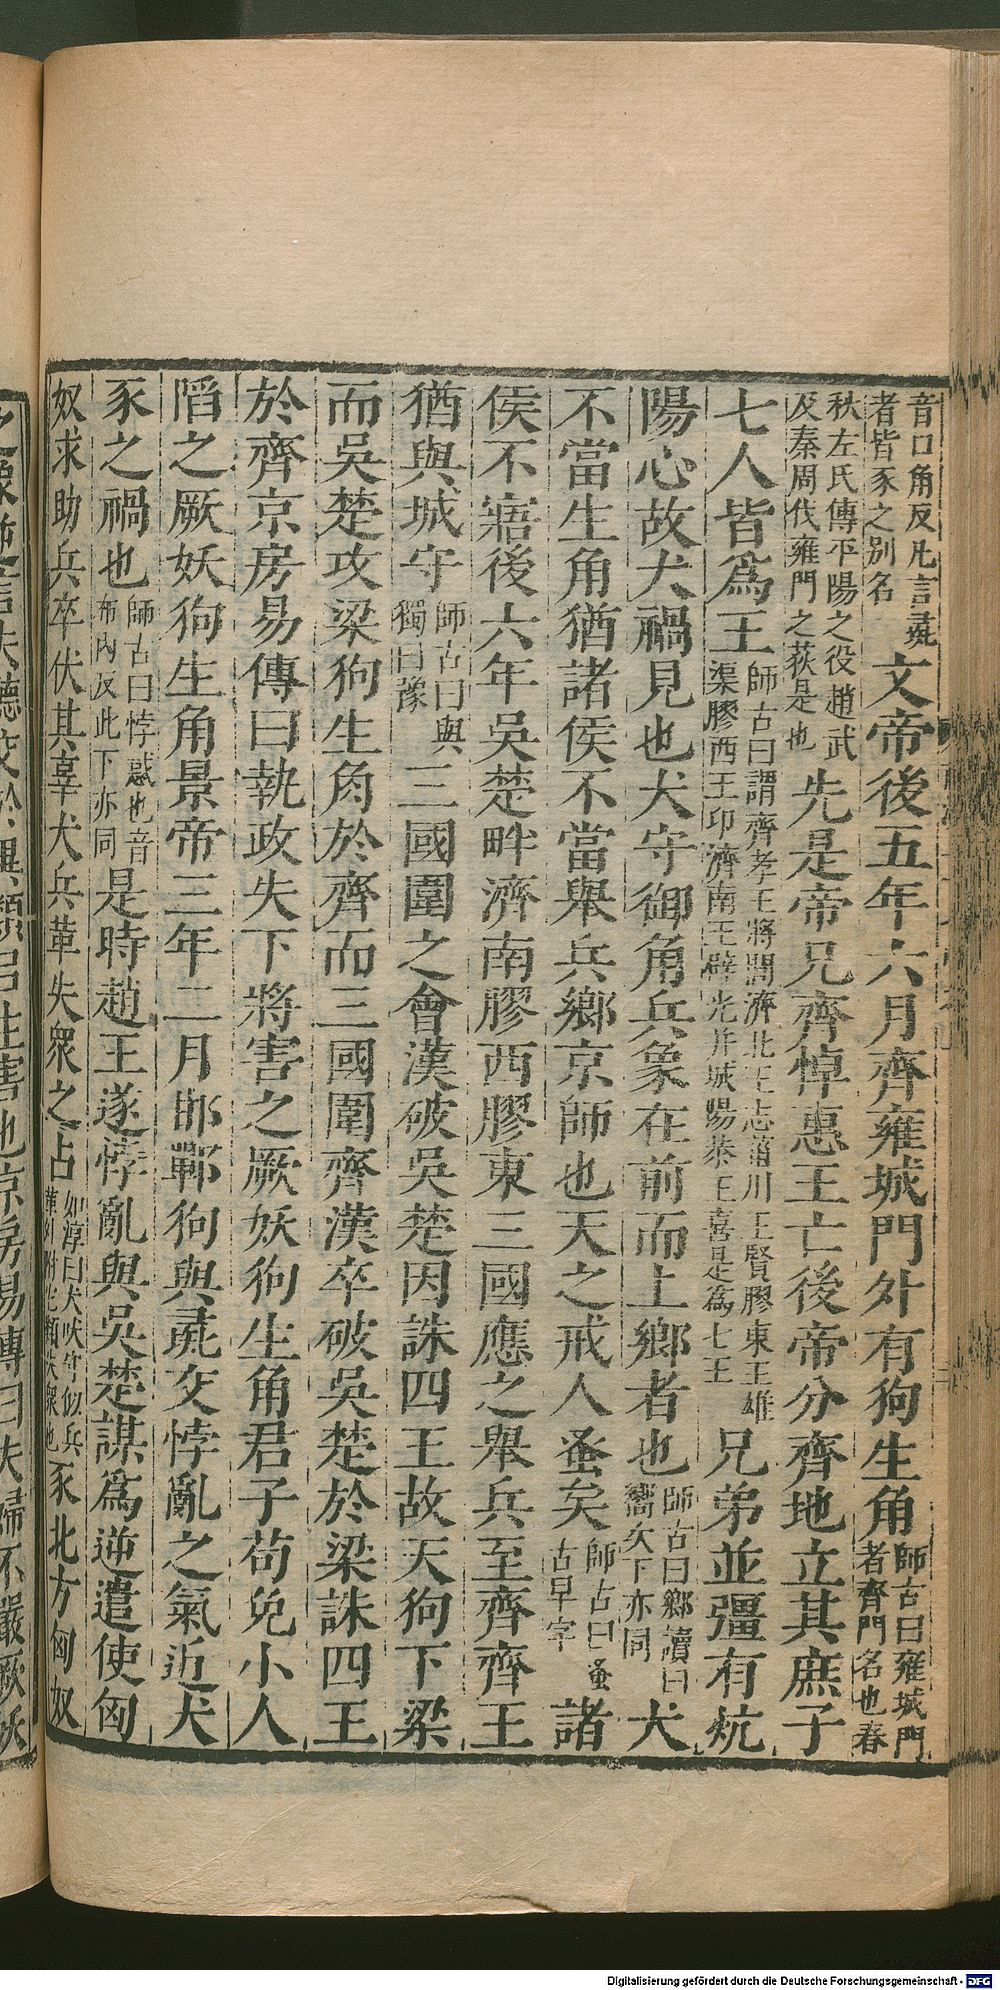 音口角反凡言彘者皆豕之別名文帝後五年六月齊雍城門外有狗生角師古曰雍城門者齊門名也春
秋左氏傳平陽之役趙武及秦周伐雍門之荻是也先是帝兄齊悼惠王亡後帝分齊地立其庶子
七人皆爲王師古曰謂齊孝王將閭濟北王志菑川王賢膠東王雄渠膠西王卬濟南王辟光并城陽恭王喜是爲七王兄弟並彊有炕
陽心故犬禍見也犬守御角兵象在前而上鄉者也師古曰鄉讀曰嚮次下亦同犬
不當生角猶諸侯不當舉兵鄉京師也天之戒人蚤矣師古曰蚤古早字諸
侯不寤後六年吳楚畔濟南膠西膠東三國應之舉兵至齊齊王
猶與城守師古曰與獨曰豫三國圍之會漢破吳楚因誅四王故天狗下梁
而吳楚攻梁狗生角於齊而三國圍齊漢卒破吳楚於梁誅四王
於齊京房易傳曰執政失下將害之厥妖狗生角君子苟免小人
陷之厥妖狗生角景帝三年二月邯鄲狗與彘交悖亂之氣近犬
豕之禍也師古曰悖惑也音布內反此下亦同是時趙王遂悖亂與吳楚謀爲逆遣使匈
奴求助兵卒伏其辜犬兵革失衆之占如淳曰犬吠守似兵革外附它類失衆也豕北方匈奴
之象逆言失德交於異類呂生害也京房易傳曰夫婦不嚴厥妖
Digitalisierung gefördert durch die Deutsche Forschungsgemeinschaft - DFG